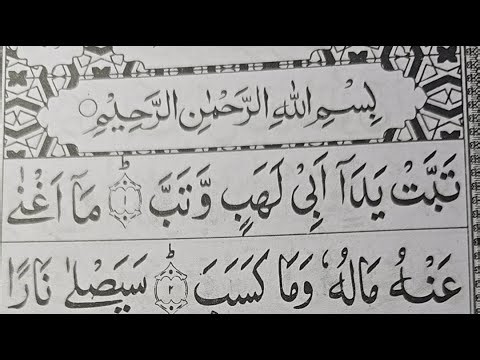 بِسْمِ اللهِ الرَّحْمٰنِ الرَّحِيْمِ
تَبَّتْ يَدَآ اَبِيْ لَهَبٍ وَّ تَبَّ ۞ؕ۱ مَآ اَغْنٰى
عَنْهُ مَالُهٗ وَمَا كَسَبَ ۞ؕ۲ سَيَصْلٰى نَارًا